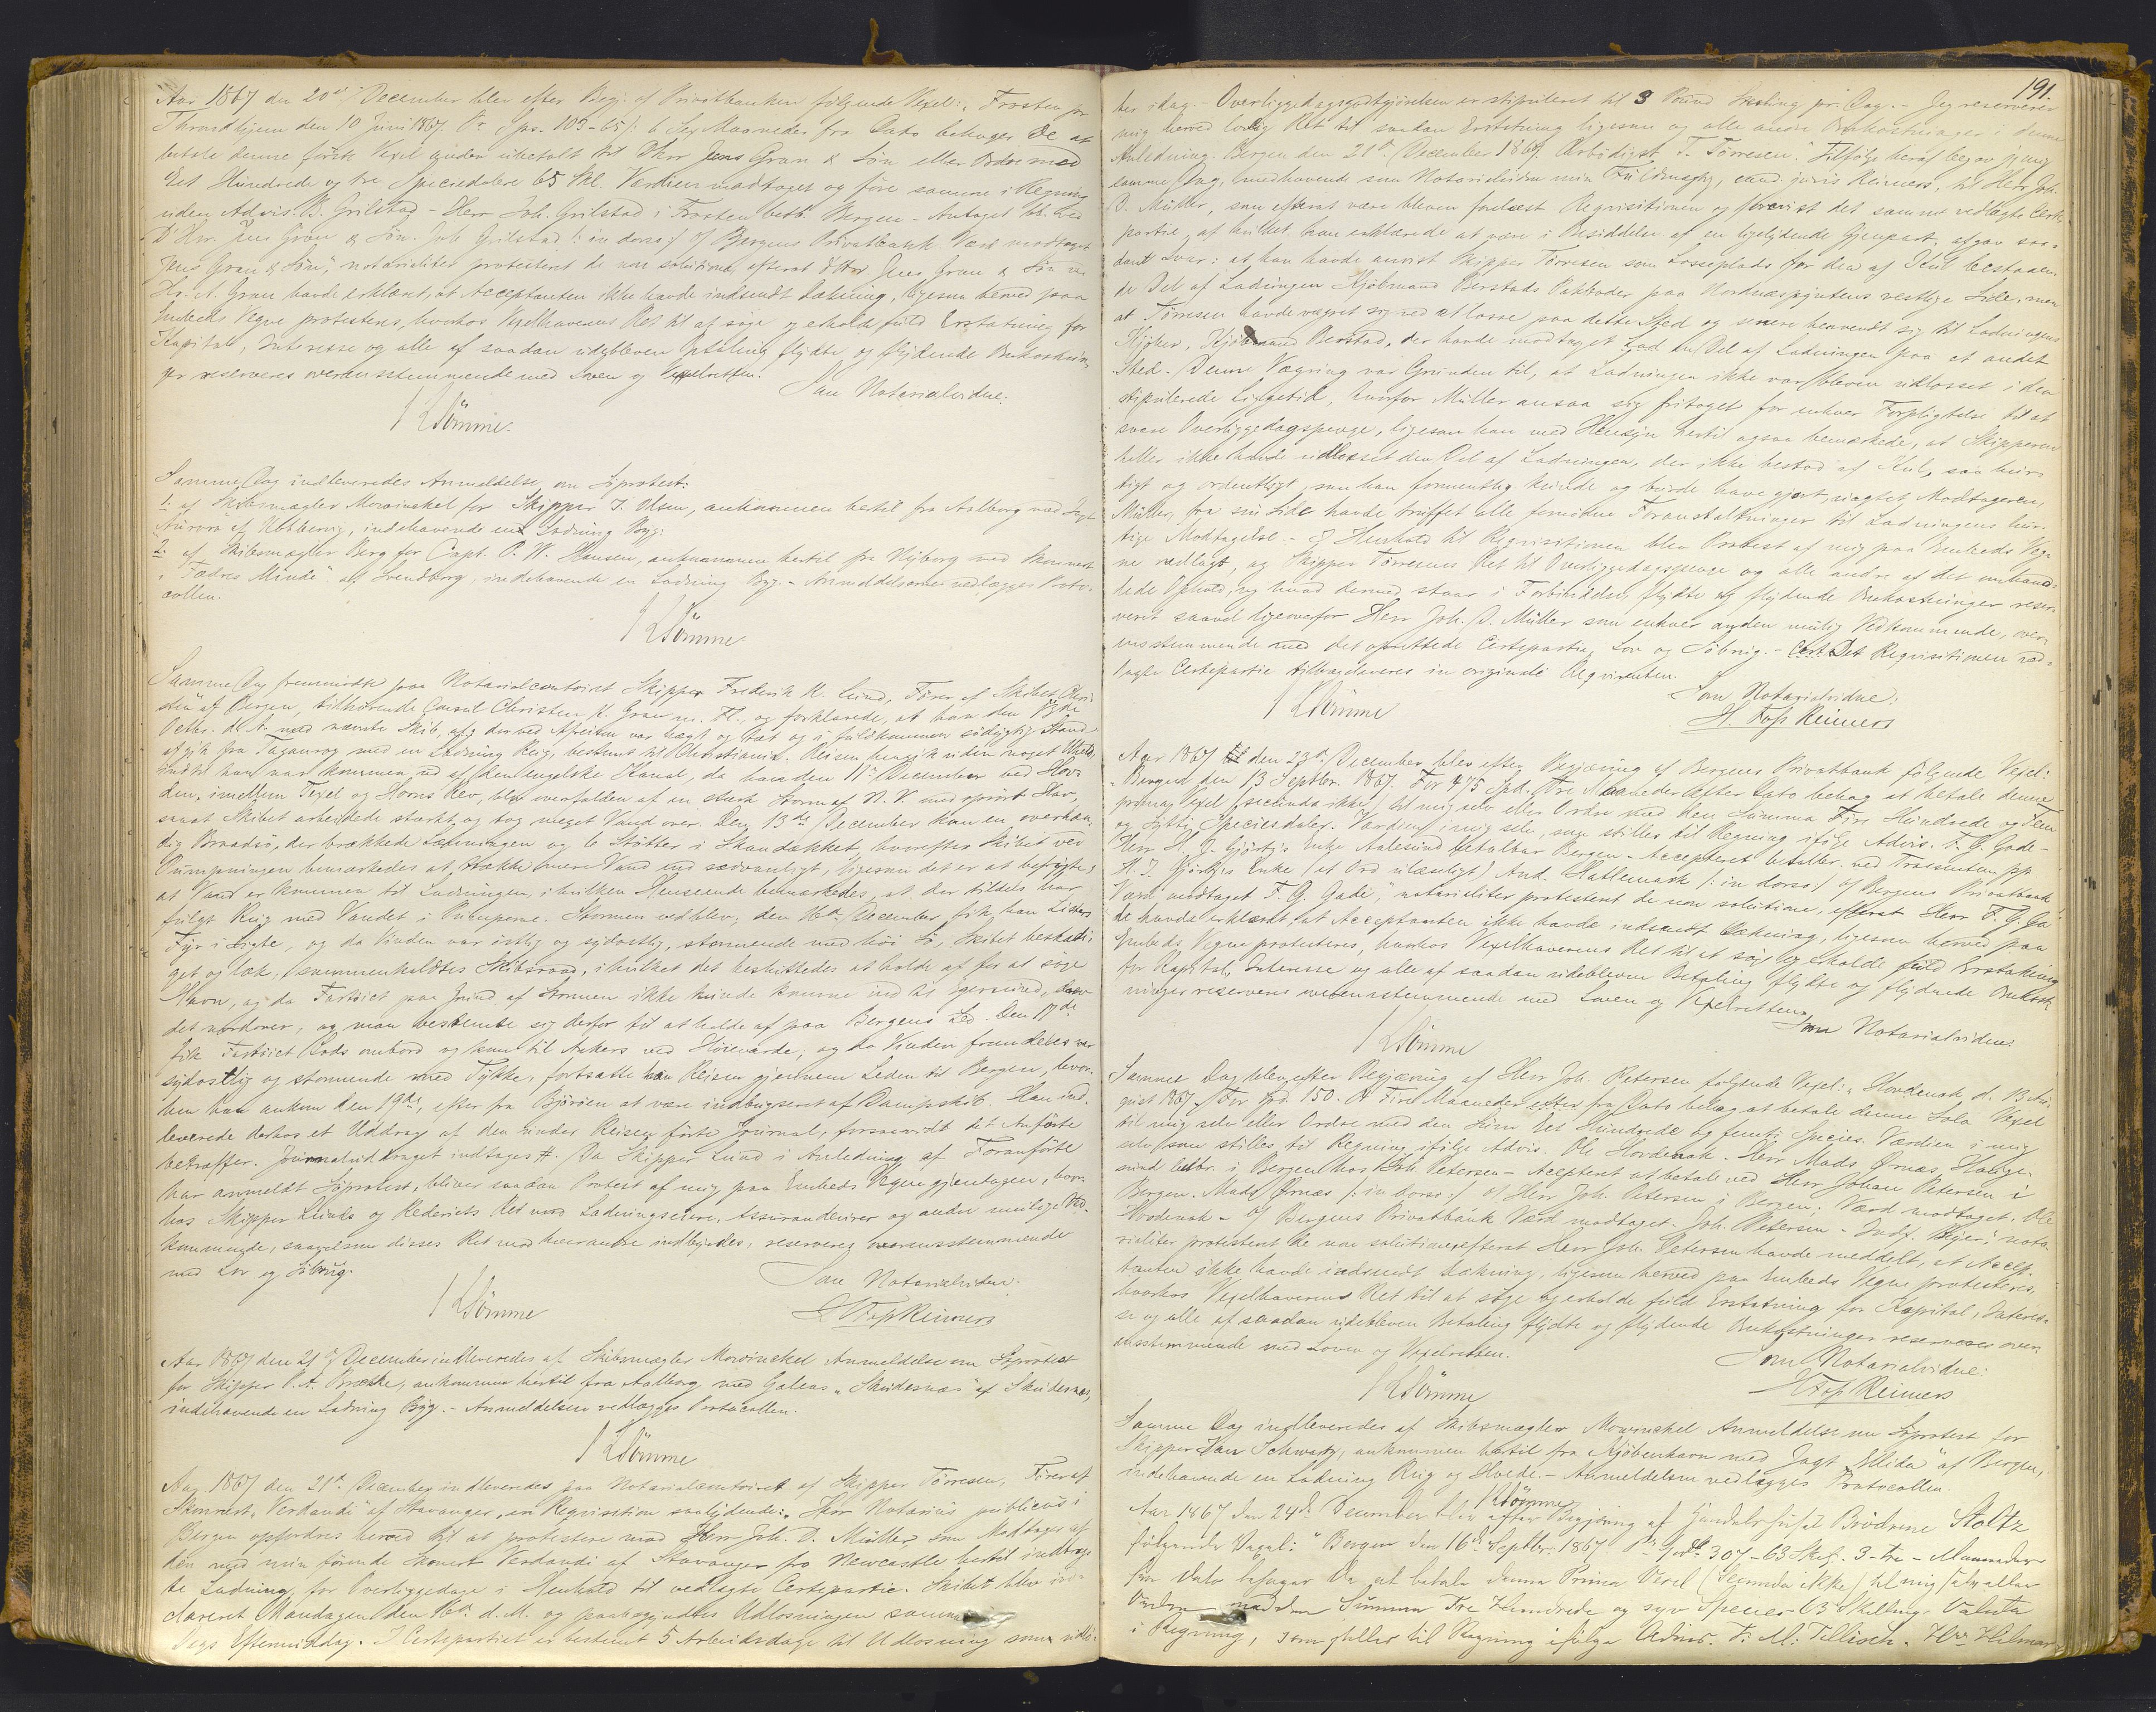 Aar 1867 den 20de December blev efter Begj. af Privatbanken følgende Vexel: „Frosten pr
Throndhjem den 10 Juni 1867. Pr Sps. 103-65/: 6 Sex Maaneder fra Dato behager De at
betale denne første Vexel anden ubetalt til DHrr Jens Gran & Søn eller Ordre med
Et Hundrede og tre Speciedalere 65 Skl. Værdien modtaget og føre samme i Regning
uden Advis. B. Grilstad - Herr Joh. Grilstad i Frosten betb. Bergen - Antaget bb. hos
D'Hrr. Jens Gran & Søn. Joh. Grilstad /: in dorso :/ Til Bergens Privatbank. Værdi modtaget
Jens Gran & Søn", notarialiter protesteret de non solutione, efterat DHrr Jens Gran & Søn ved
Hr. A. Gran havde erklæret, at Acceptanten ikke havde indsendt Dækning, ligesom herved paa
Embeds Vegne protesteres, hvorhos Vexelhaverens Ret til at søge og erholde fuld Erstatning for
Kapital, Interesse og alle af saadan udebleven Betaling flydte og flydende Omkostnin-
ger reserveres overensstemmende med Loven og Vexelretten.
Som Notarialvidne:
Sømme.
Samme Dag indleveredes Anmeldelse om Søprotest:
1. af Skibsmægler Mowinckel for Skipper J. Olsen, ankommen hertil fra Aalborg med Jagt
„Aurora" af Kobbervig, indehavende en Ladning Byg.
2. af Skibsmægler Berg for Capt. P. W. Hansen, ankommen hertil fra Nyborg med Skonnert
„Fædres Minde" af Svendborg, indehavende en Ladning Byg. - Anmeldelserne vedlægges Proto-
collen.
Sømme
Samme Dag fremmødte paa Notarialcontoiret Skipper Frederik K. Lund, Fører af Skibet „Chri-
sten" af Bergen, tilhørende Consul Christen K. Gran m. Fl., og forklarede, at han den
Octbr. d. A. med nævnte Skib, der ved Afreisen var tægt og tæt og i fuldkommen sødygtig Stand
afgik fra Taganrog med en Ladning Rug, bestemt til Christiania. Reisen foregik uden noget Uheld,
indtil han var kommen ud af den engelske Kanal, da han den 11te December ved Hov-
den, imellem Texel og Horns Rev, blev overfalden af en stærk Storm af N. V. med oprørt Hav,
saaat Skibet arbeidede stærkt og tog meget Vand over. Den 13de December kom en overhæn-
dig Braadsø, der brækkede Lædningen og 6 Støtter i Skandækket, hvorefter Skibet ved
Pumpningen bemærkedes at trække mere Vand end sædvanligt, ligesom det er at befrygte,
at Vand er kommen til Ladningen, i hvilken Henseende bemærkedes, at der tildels har
fulgt Rug med Vandet i Pumperne. Stormen vedblev; den 16de December fik han Listers
Fyr i Sigte, og da Vinden var østlig og sydostlig, stormende med høi Sø, Skibet beskadi-
get og læk, sammenholdtes Skibsraad, i hvilket det besluttedes at holde af for at søge
Havn, og da Fartøiet paa Grund af Stormen ikke kunde komme ind til Egersund, drev
det nordover, og man bestemte sig derfor til at holde af paa Bergens Led. Den 17de
fik Fartøiet Lods ombord og kom til Ankers ved Høievarde, og da Vinden fremdeles var
sydostlig og stormende med Tykke, fortsatte han Reisen gjennem Leden til Bergen, hvor-
hen han ankom den 19de, efter fra Bjørøen at være indbugseret af Dampskib. Han ind-
leverede derhos et Uddrag af den under Reisen førte Journal, forsaavidt det Anførte
betræffer. Journaluddraget indtages #. Da Skipper Lund i Anledning af Foranførte
har anmeldt Søprotest, bliver saadan Protest af mig paa Embeds Vegne gjentagen, hvor-
hos Skipper Lunds og Rederiets Ret mod Ladningseiere, Assurandeurer og andre mulige Ved-
kommende, saavelsom disses Ret mod hverandre indbyrdes, reserveres overensstemmende
med Lov og Søbrug.
Som Notarialvidne:
Sømme
H Fass Reimers
Aar 1867 den 21de December indleveredes af Skibsmægler Mowinckel Anmeldelse om Søprotest
for Skipper P. A. Brække, ankommen hertil fra Aalborg med Galeas „Skudesnæs" af Skudesnæs,
indehavende en Ladning Byg. - Anmeldelsen vedlægges Protocollen.
Sømme
Aar 1867 den 21de December indleveredes paa Notarialcontoiret af Skipper Tørresen, Fører af
Skonnert „Verdandi" af Stavanger, en Requisition saalydende: „Herr Notarius publicus i
Bergen opfordres herved til at protestere mod Herr Joh. D. Müller som Modtager af
den med min førende Skonnert Verdandi af Stavanger fra Newcastle hertil indbrag-
te Ladning, for Overliggedage i Henhold til vedlagte Certepartie. Skibet blev ind-
clareret Mandagen den 16de d. M. og paabegyndtes Udlosningen samme
Dags Eftermiddag. I Certepartiet er bestemt 5 Arbeidsdage til Udlosning som udlø-
191.
ber idag. - Overliggedagsgodtgjørelsen er stipuleret til 3 Pund Sterling pr. Dag. - Jeg reserverer
mig herved lovlig Ret til saadan Erstatning ligesom og alle andre Omkostninger i denne
Anledning. Bergen den 21de December 1867. Ærbødigst T. Tørresen." Ifølge heraf begav jeg mig
samme Dag, medhavende som Notarialvidne min Fuldmægtig, cand. juris Reimers, til Herr Joh.
D. Müller, som efterat være bleven forelæst Requisitionen og forevist det samme vedlagte Certe-
partie, af hvilket han erklærede at være i Besiddelse af en ligelydende Gjenpart, afgav saa-
dant Svar: at han havde anvist Skipper Tørresen som Losseplads for den af Kul bestaaen-
de Del af Ladningen Kjøbmand Berstads Pakboder paa Nordnæspyntens vestlige Side, men
at Tørresen havde vægret sig ved at losse paa dette Sted og senere henvendt sig til Ladningens
Kjøber, Kjøbmand Berstad, der havde modtaget en Del af Ladningen paa et andet
Sted. - Denne Vægring var Grunden til, at Ladningen ikke var bleven udlosset i den
stipulerede Liggetid, hvorfor Müller ansaa sig fritaget for enhver Forpligtelse til at
svare Overliggedagspenge, ligesom han med Hensyn hertil ogsaa bemærkede, at Skipperen
heller ikke havde udlosset den Del af Ladningen, der ikke bestod af Kul, saa hur-
tigt og ordentligt, som han formentlig kunde og burde have gjort, uagtet Modtageren,
Müller, fra sin Side havde truffet alle fornødne Foranstaltninger til Ladningens hur-
tige Modtagelse. - I Henhold til Requisitionen blev Protest af mig paa Embeds Veg-
ne nedlagt, og Skipper Tørresens Ret til Overliggedagspenge og alle andre af det omhand-
lede Ophold, og hvad dermed staar i Forbindelse, flydte og flydende Omkostninger reser-
veret saavel ligeoverfor Herr Joh. D. Müller som enhver anden mulig Vedkommende, over-
ensstemmende med det oprettede Certepartie, Lov og Søbrug. - Det Requisitionen ved-
lagte Certepartie tilbageleveres in originali Requirenten.
Som Notarialvidne:
Sømme
H. Fass Reimers
Aar 1867 den 23de December blev efter Begjæring af Bergens Privatbank følgende Vexel:
„Bergen den 13 Septbr. 1867. For 475 Spd. Tre Maaneder efter Dato behag at betale denne
prima Vexel (secunda ikke) til mig selv eller Ordre med den Summa Fire Hundrede og Fem
og Sytti Speciesdaler. Værdien i mig selv, som stilles til Regning ifølge Advis. F. G. Gade -
Herr H. J. Gjørtz's Enke Aalesund betalbar Bergen - Accepteret betalbar ved Trassenten pp
H. J. Gjørtzes Enke (et Ord ulæseligt) And. Hatlemark /: in dorso :/ Til Bergens Privatbank
Værdi modtaget F. G. Gade," notarialiter protesteret de non solutione, efterat Herr F. G. Ga-
de havde erklæret, at Acceptanten ikke havde indsendt Dækning, ligesom herved paa
Embeds Vegne protesteres, hvorhos Vexelhaverens Ret til at søge og erholde fuld Erstatning
for Kapital, Interesse og alle af saadan udebleven Betaling flydte og flydende Omkost-
ninger reserveres overensstemmende med Loven og Vexelretten.
Som Notarialvidne:
Sømme
Samme Dag blev efter Begjæring af Herr Joh. Petersen følgende Vexel: „Hovdenak d. 13 Au-
gust 1867. For Spd. 150. Fire Maaneder fra Dato behag at betale denne Sola Vexel
til mig selv eller Ordre med den Sum Et Hundrede og femti Species. Værdien i mig
selv som stilles til Regning ifølge Advis. Ole Hovdenak. Herr Mads Ørnæs, Hauge-
sund betbr. i Bergen hos Joh. Petersen - Accepteret at betale ved Herr Johan Petersen i
Bergen. Mads Ørnæs /: in dorso :/ til Herr Joh. Petersen i Bergen. Værd modtaget. Ole
Hovdenak - Til Bergens Privatbank Værd modtaget. Joh. Petersen - Indf. Beyer", nota-
rialiter protesteret de non solutione, efterat Herr Joh. Petersen havde meddelt, at Accep-
tanten ikke havde indsendt Dækning, ligesom herved paa Embeds Vegne protesteres,
hvorhos Vexelhaverens Ret til at søge og erholde fuld Erstatning for Kapital, Interes-
se og alle af saadan udebleven Betaling flydte og flydende Omkostninger reserveres over-
ensstemmende med Loven og Vexelretten.
Som Notarialvidne:
Sømme
H Fass Reimers
Samme Dag indleveredes af Skibsmægler Mowinckel Anmeldelse om Søprotest for
Skipper Jan Schwartz, ankommen hertil fra Kjøbenhavn med Jagt „Alida" af Bergen,
indehavende en Ladning Rug og Hvede. - Anmeldelsen vedlægges Protocollen.
Sømme
Aar 1867 den 24de December blev efter Begjæring af Handelshuset Brødrene Stoltz
følgende Vexel: „Bergen den 16de Septbr. 1867 Pr Good 307 - 63 Skg. 3 - tre - Maaneder
fra Dato behager De at betale denne Prima Vexel (Secunda ikke) til mig selv eller
Ordre med den Summa Tre Hundrede og syv Species 63 Skilling. Valuta
i Regning, som stilles til Regning ifølge Advis. F. M. Tillisch. Hrr Hilmar